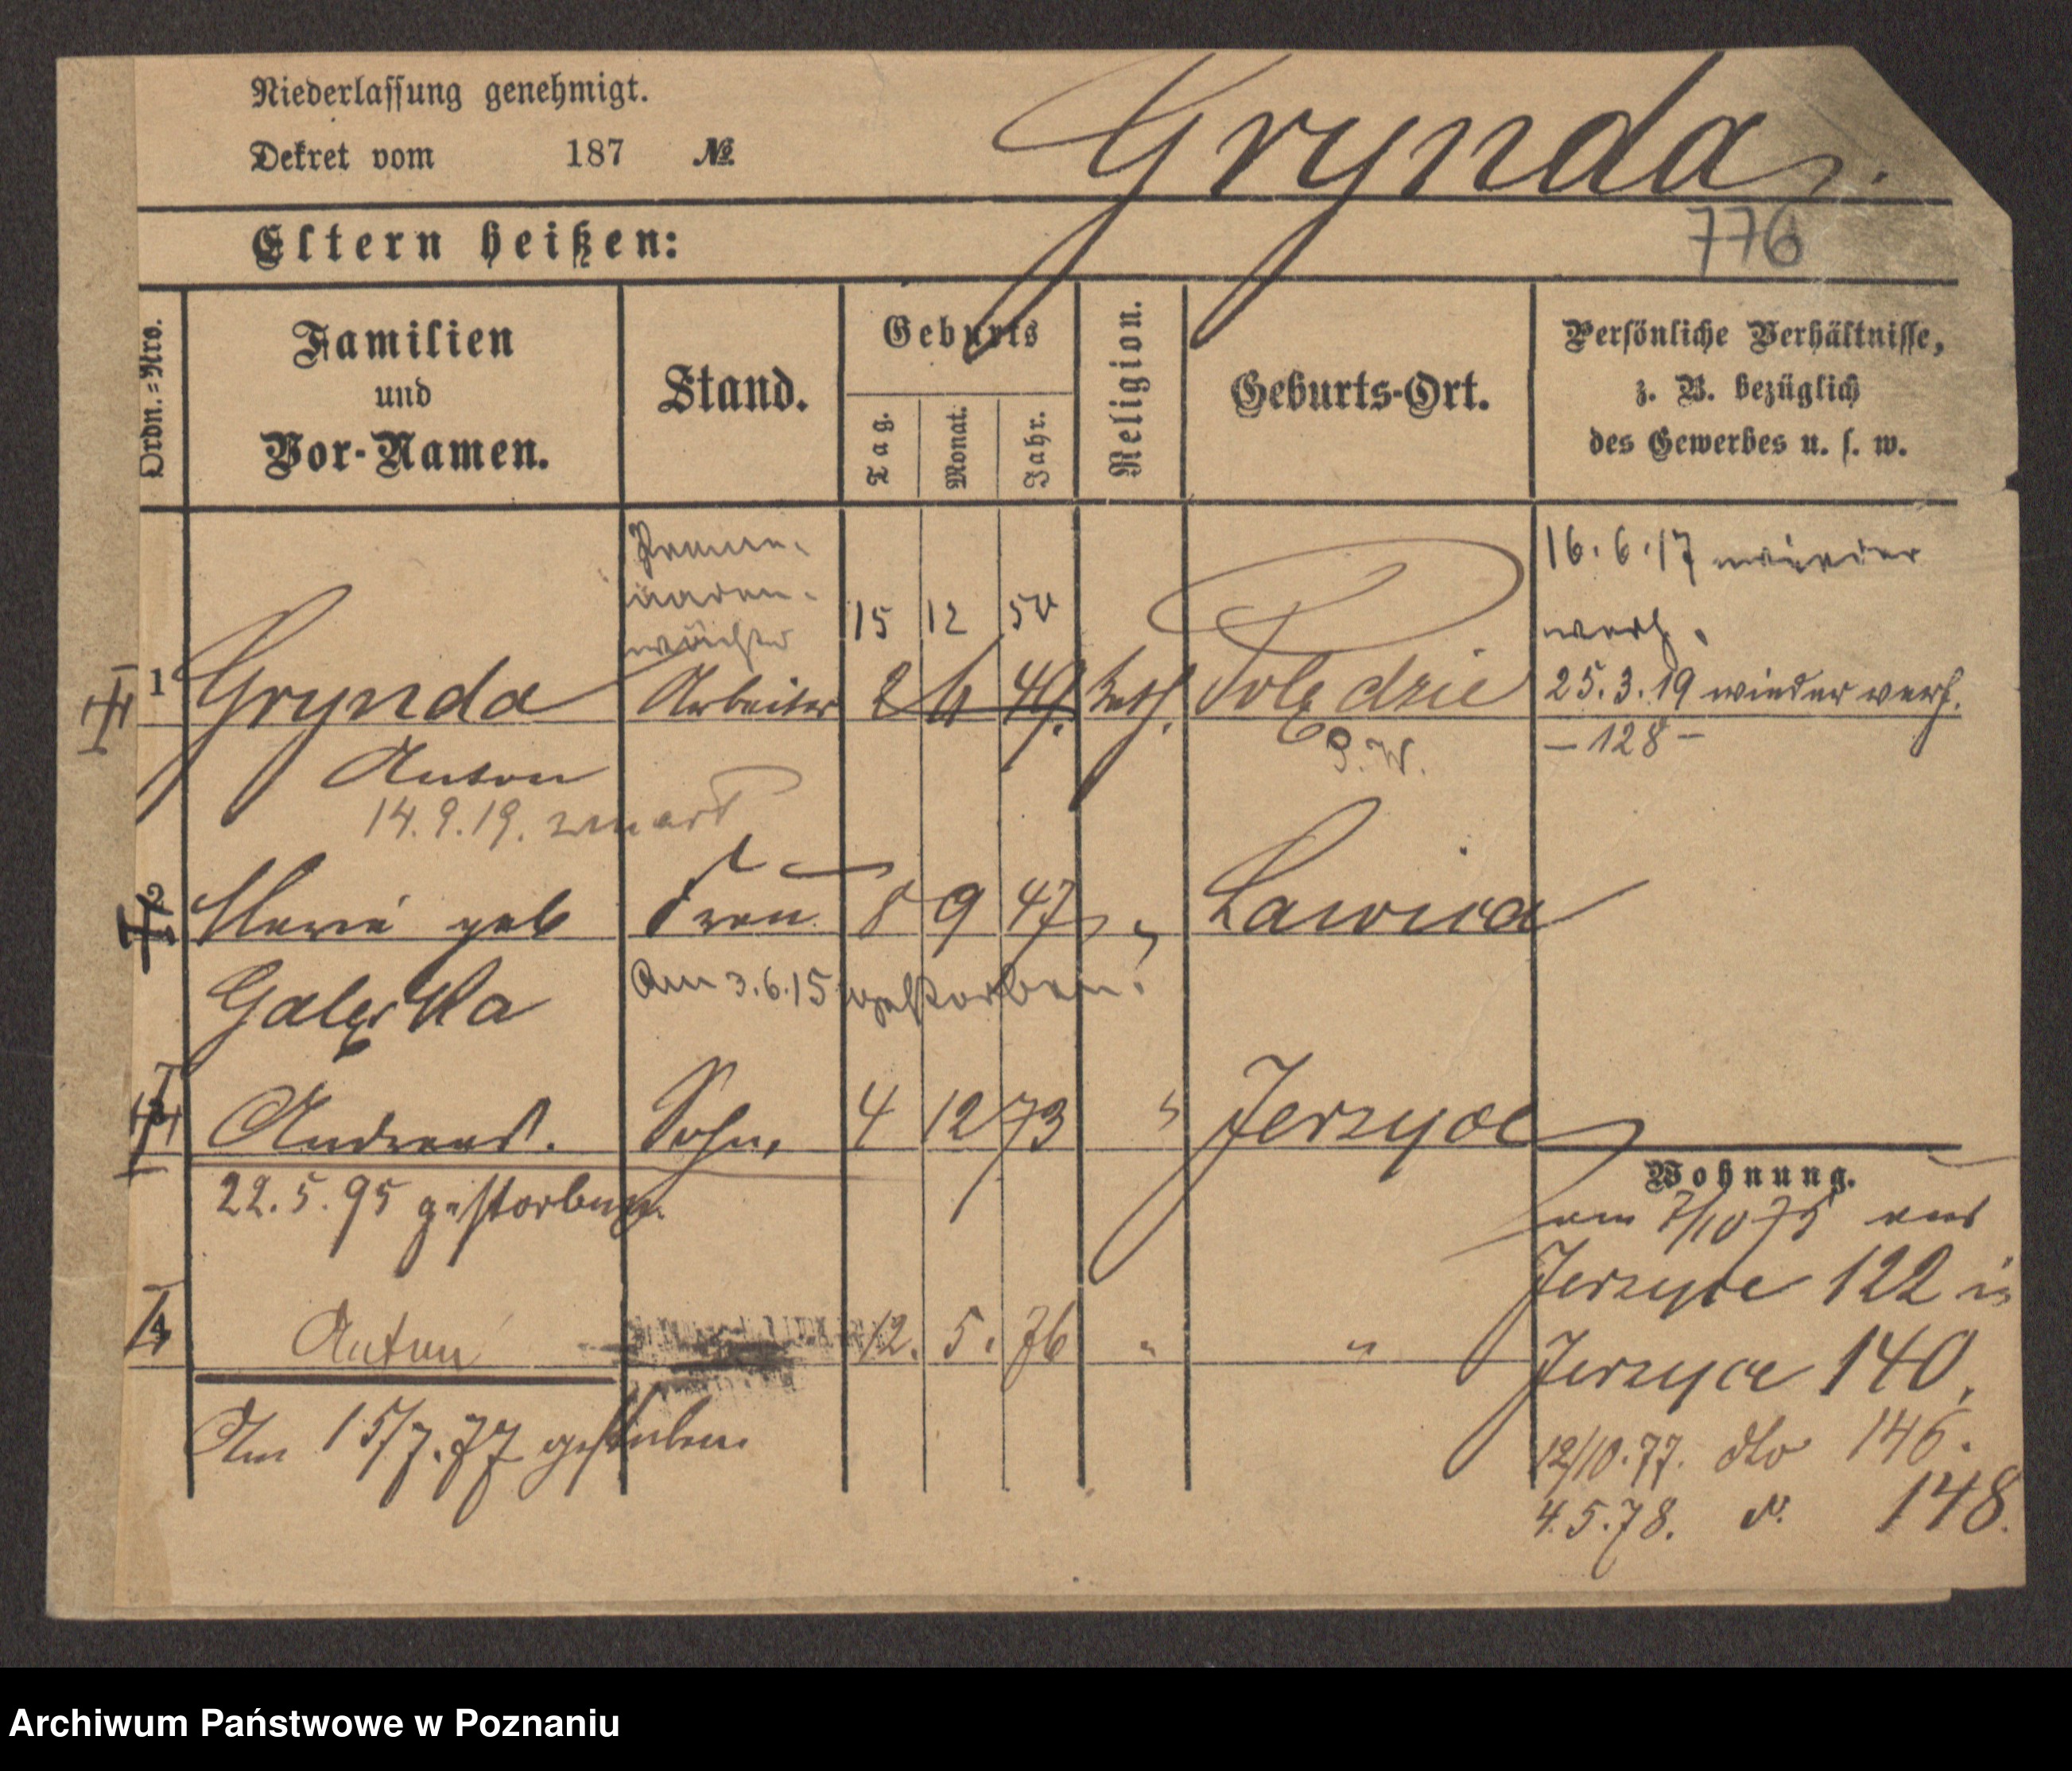 Niederlassung genehmigt.
Dekret vom 187 №
Grynda
776
Eltern heißen:
Ordn.=Nro.
Familien
und
Vor-Namen.
Stand.
Geburts
Tag.
Monat.
Jahr.
Religion.
Geburts-Ort.
Persönliche Verhältnisse,
z. B. bezüglich
des Gewerbes u. s. w.
16.6.17 wieder
verh.
15 12 50
wächter
1 Grynda Arbeiter 2 6 49. kath. 25.3.19 wieder verh.
Anton P.W. - 128 -
14.9.19.
2 Marie geb Frau 8 9 47 Lawica
Am 3.6.15 gestorben.
3 Andreas. Sohn, 4 12 73 " Jerzyce
22.5.95 gestorben.
Wohnung.
am 7/10 75 aus
Jerzyce 122 in
4 Anton 12. 5. 76 " "
Jerzyce 140.
Am 15/7.77 gestorben.
12/10.77. dto 146.
4.5.78. do. 148.
Archiwum Państwowe w Poznaniu